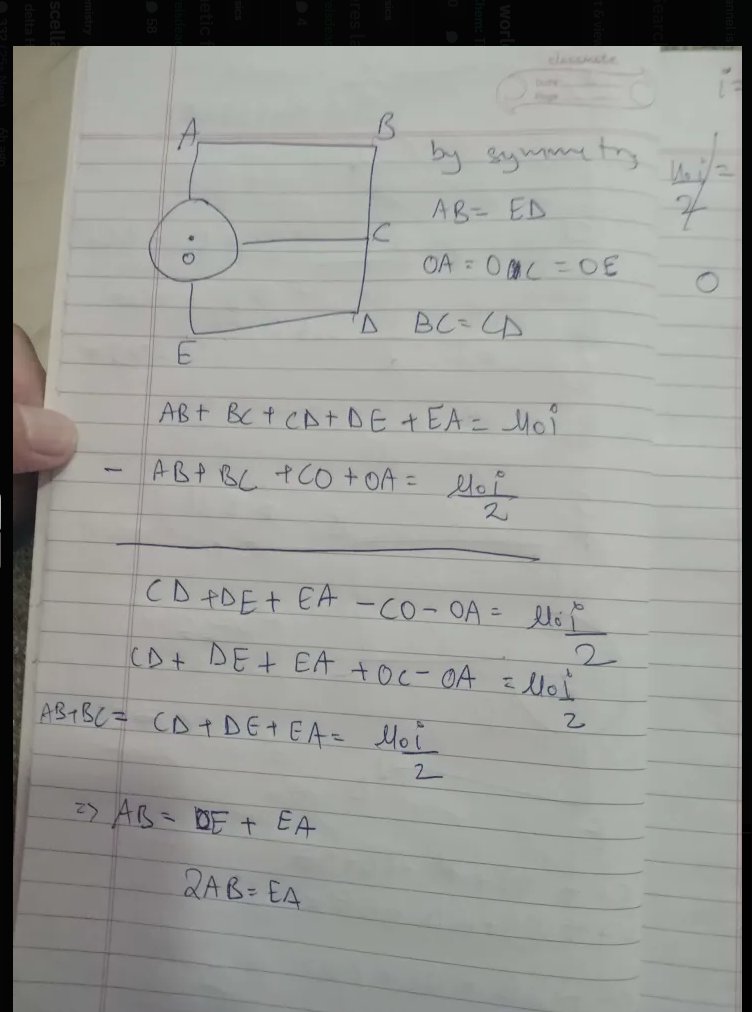 classmate
Date
Page
i=
A
B
by symmetry
μ₀i/2 =
AB = ED
C
O
OA = OC = OE
O
D
BC = CD
E
AB + BC + CD + DE + EA = μ₀i
- AB + BC + CO + OA = μ₀i/2
CD + DE + EA - CO - OA = μ₀i/2
CD + DE + EA + OC - OA = μ₀i/2
AB+BC = CD + DE + EA = μ₀i/2
=> AB = DE + EA
2AB = EA